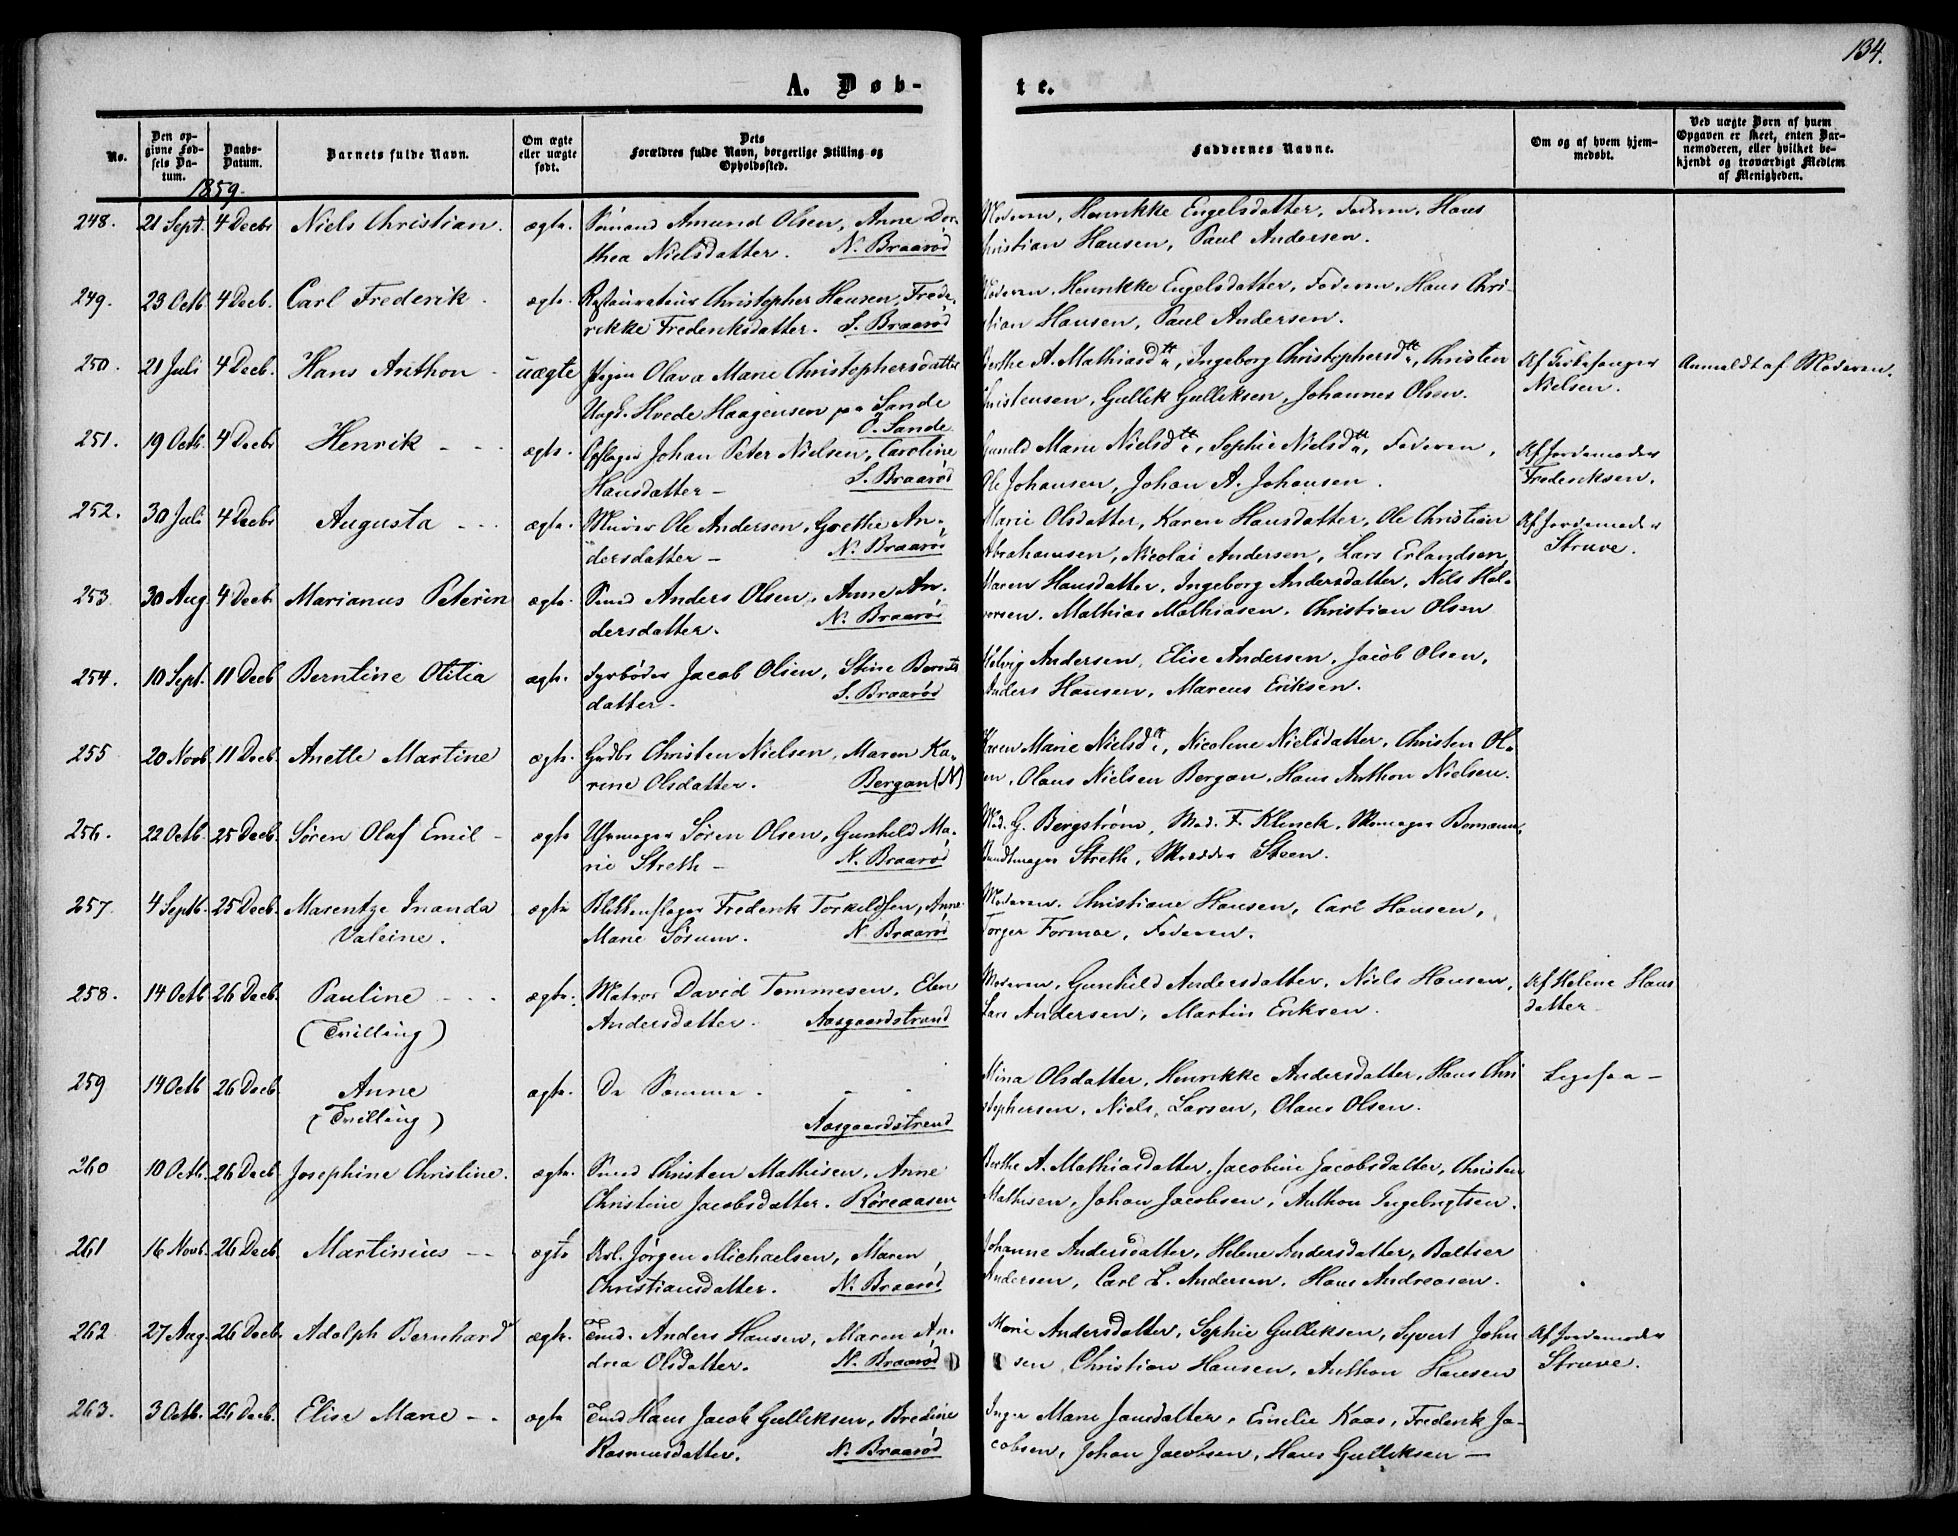 134.
A. Døb-
te.
No.
Den op-
givne Fød-
sels Da-
tum.
Daabs-
Datum.
Barnets fulde Navn.
Om ægte
eller uægte
født.
Dets
Forældres fulde Navn, borgerlige Stilling og
Opholdssted.
Faddernes Navne.
Om og af hvem hjem-
medøbt.
Ved uægte Børn af hvem
Opgaven er skeet, enten Bar-
nemoderen, eller hvilket be-
kjendt og troværdigt Medlem
af Menigheden.
1859.
248. 21 Sept. 4 Decbr Niels Christian. ægte. Sømand Amund Olsen, Anne Dor-
thea Nielsdatter. N. Braarød
Moderen, Henrikke Engelsdatter, Faderen, Hans
Christian Hansen, Paul Andersen.
249. 23 Octb 4 Decb. Carl Frederik. ægte. Restaurateur Christopher Hansen, Frede-
rikke Frederiksdatter. S. Braarød
Moderen, Henrikke Engelsdatter, Faderen, Hans Chri-
stian Hansen, Paul Andersen.
250. 21 Juli 4 Decb. Hans Anthon uægte Pigen Olava Marie Christophersdatter
Ungk. Hvede Haagensen paa Sande
Ø. Sande
Berthe A. Mathiasdtr, Ingeborg Christophersdtr, Christen
Christensen, Gullik Gulliksen, Johannes Olsen.
Af Kirkesanger
Nielsen.
Anmeldt af Moderen.
251. 19 Octb. 4 Decbr Henrik - - ægte. Opslager Johan Peter Nielsen, Caroline
Hansdatter - S. Braarød
Gunild Marie Nielsdtr, Sophie Nielsdtr, Faderen,
Ole Johansen, Johan A. Johansen.
Af Jordemoder
Frederiksen.
252. 30 Juli 4 Decbr Augusta - - - ægte. Murer Ole Andersen, Grethe An-
dersdatter - N. Braarød
Marie Olsdatter, Karen Hansdatter, Ole Christian
Abrahamsen, Nicolai Andersen, Lars Erlandsen
Af Jordemoder
Struve.
253 30 Aug. 4 Decb. Marianus Peterin ægte. Smed Anders Olsen, Anne An-
dersdatter. N. Braarød
Maren Hansdatter, Ingeborg Andersdatter, Nils Hal-
vorsen. Mathias Mathiasen. Christian Olsen
254. 10 Sept. 11 Decb Berntine Otilia ægte. Fyrbøder Jacob Olsen, Stine Bernts
datter. S. Braarød
Helvig Andersen, Elise Andersen, Jacob Olsen,
Anders Hansen, Marcus Eriksen.
255 20 Novb. 11 Decb. Anette Martine ægte. Grdbr Christen Nielsen, Maren Ka-
rine Olsdatter. Bergan (N)
Karen Marie Nielsdtr, Nicoline Nielsdatter, Christen Ol-
sen, Olaus Nielsen Bergan, Hans Anthon Nielsen.
256. 22 Octb. 25 Decb. Søren Olaf Emil - ægte Uhrmager Søren Olsen, Gunhild Ma-
rie Streth - N. Braarød
Mad. G. Bergstrøm, Mad. F. Klinck, Skomager Bomann,
Bundtmager Streth, Skrædder Steen.
257. 4 Septb. 25 Decb. Masentze Inanda
Valeine.
ægte Blikkenslager Frederik Torkildsen, Anne
Marie Søsum. N. Braarød
Moderen. Christiane Hansen, Carl Hansen,
Torger Formoe, Faderen.
258. 14 Octb 26 Decb. Pauline - - -
(Tvilling)
ægte. Matros David Tommesen, Elen
Andersdatter. Aasgaardstrand
Moderen, Gunhild Andersdatter, Niels Hansen,
Lars Andersen, Martin Eriksen.
Af Helene Hans
datter
259 14 Octb 26 Decb. Anne
(Tvilling)
ægte. De Samme. - -
Aasgaardstrand
Mina Olsdatter, Henrikke Andersdatter, Hans Chri
stophersen, Niels Larsen, Olaus Olsen.
Ligesaa -
260 10 Octb. 26 Decb. Josephine Christine. ægte. Smed Christen Mathisen, Anne
Christine Jacobsdatter. Røreaasen
Berthe A. Mathiasdatter, Jacobine Jacobsdatter, Christen
Mathisen, Johan Jacobsen, Anthon Ingebrigtsen.
261 16 Novb. 26 Decb. Martinius - - ægte Arb. Jørgen Michaelsen, Maren
Christiansdatter. N. Braarød
Johanne Andersdatter, Helene Andersdatter, Baltser
Andersen, Carl L. Andersen, Hans Andreasen.
262 27 Aug. 26 Decb. Adolph Bernhard ægte. Tmd. Anders Hansen, Maren An-
drea Olsdatter. N. Braarød
Marie Andersdatter, Sophie Gulliksen, Syvert John
sen, Christian Hansen, Anthon Hansen
Af Jordemoder
Struve.
263. 3 Octb. 26 Decb. Elise Marie - - ægte Tmd Hans Jacob Gulliksen, Bredine
Rasmusdatter. N. Braarød
Inger Marie Jansdatter, Emelie Kaas, Frederik Ja-
cobsen, Johan Jacobsen, Hans Gulliksen -